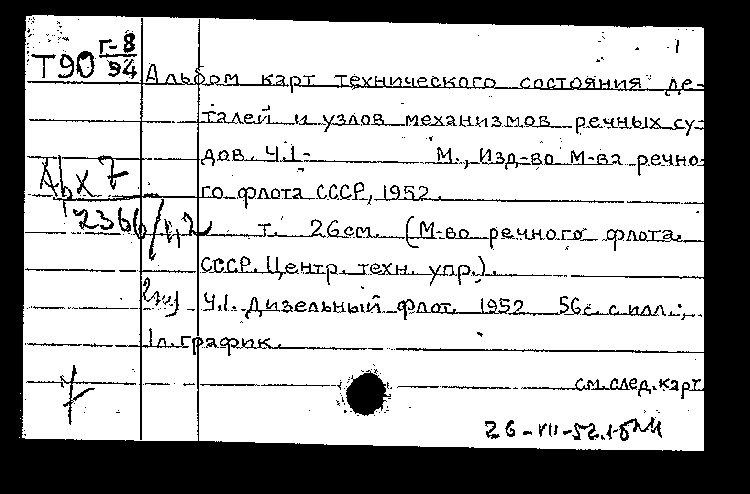 1
Т90 Г-8/94
Альбом карт технического состояния де-
талей и узлов механизмов речных су-
дов. Ч.1- М., Изд-во М-ва речно-
го флота СССР, 1952.
Аbх 7
2366/1,2
т. 26см. (М-во речного флота
СССР. Центр. техн. упр.).
2экз Ч.1. Дизельный флот. 1952 56с. с илл.;
1л. график.
см. след. карт.
7
26-VII-52.